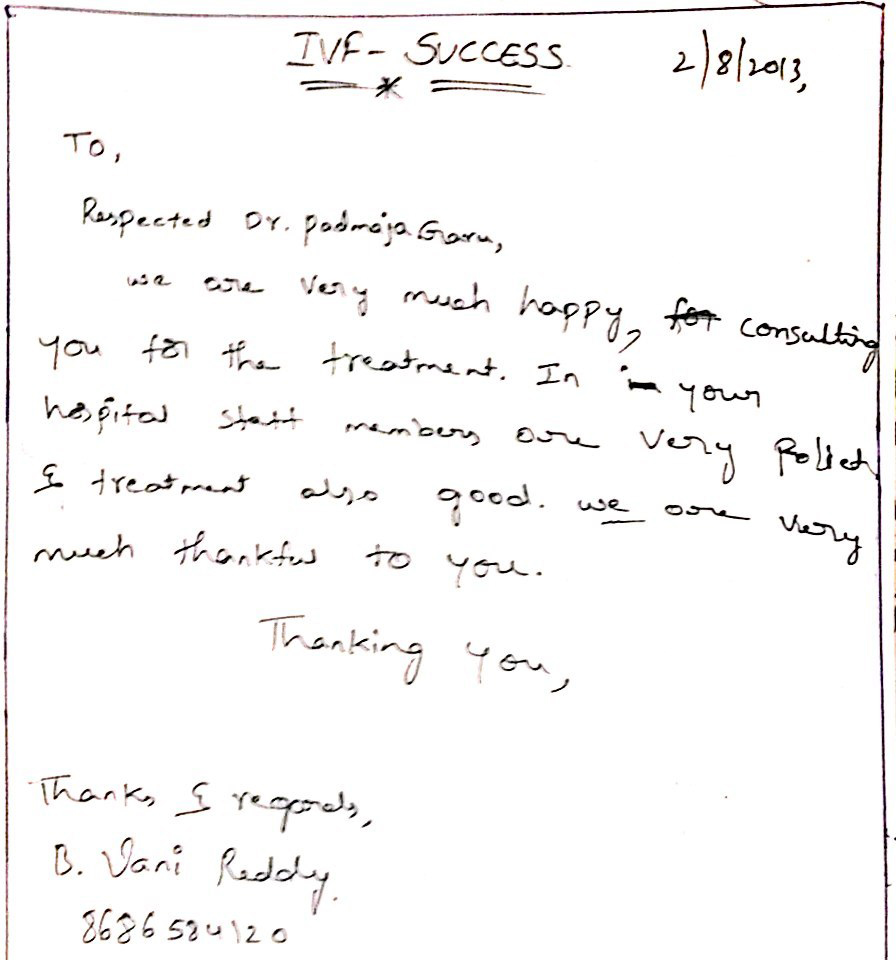 IVF - SUCCESS 2/8/2013,
To,
Respected Dr. Padmaja Garu,
we are very much happy, for consulting
you for the treatment. In in your
hospital staff members are very Polich
& treatment also good. we are very
much thankful to you.
Thanking you,
Thanks & regards,
B. Vani Reddy.
8686584120